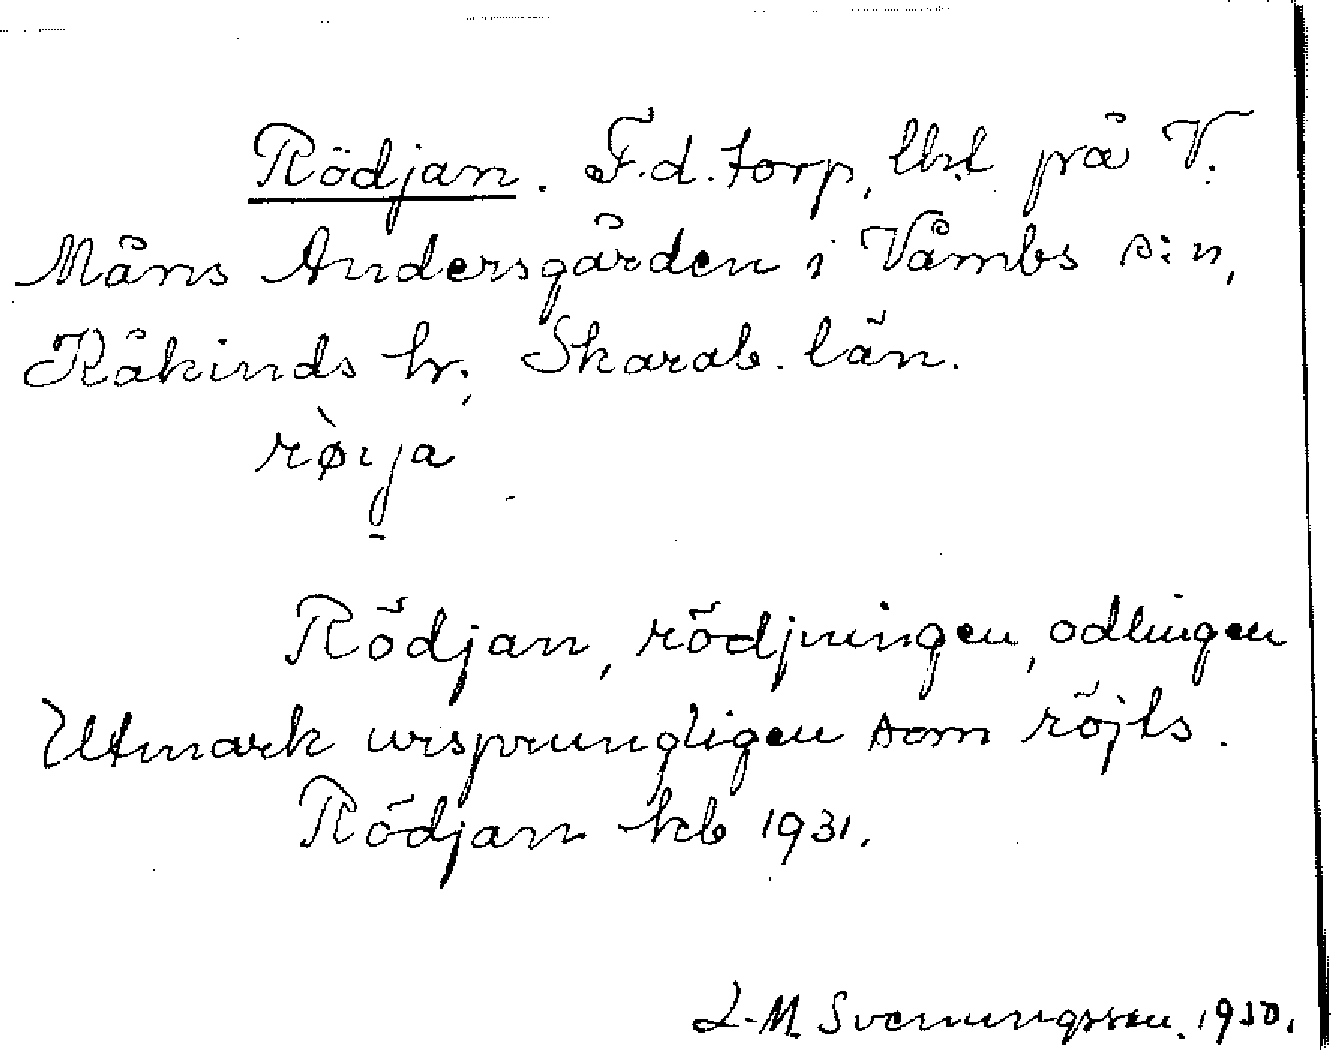 Rödjan. F.d. torp, lht på V.
Måns Andersgården i Våmbs s:n,
Kåkinds hr, Skarab. län.
rø̀ıja
Rödjan, rödjningen, odlingen
Utmark ursprungligen som röjts.
Rödjan kb 1931.
L-M Svenungsson.